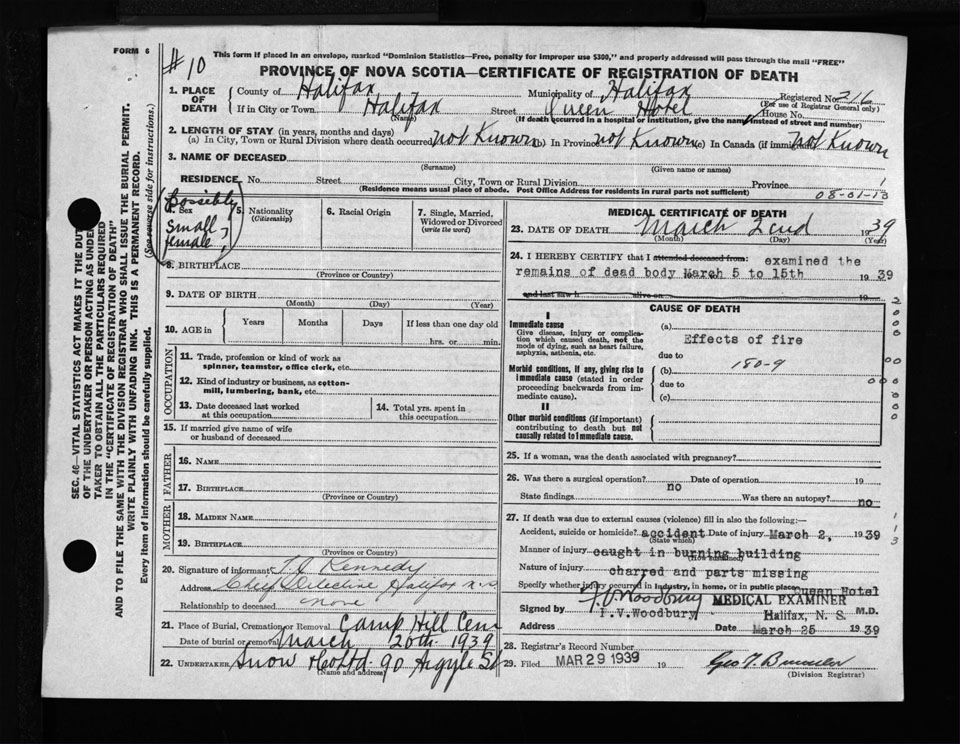 FORM 6
#10
This form if placed in an envelope, marked "Dominion Statistics—Free, penalty for improper use $300," and properly addressed will pass through the mail "FREE"
PROVINCE OF NOVA SCOTIA—CERTIFICATE OF REGISTRATION OF DEATH
1. PLACE OF DEATH
County of Halifax Municipality of Halifax Registered No. 316
(For use of Registrar General only)
If in City or Town Halifax Street Queen Hotel House No.
(Name) (If death occurred in a hospital or institution, give the name instead of street and number)
2. LENGTH OF STAY (in years, months and days)
(a) In City, Town or Rural Division where death occurred not Known (b) In Province not Known (c) In Canada (if immigrant) not Known
3. NAME OF DECEASED
(Surname) (Given name or names)
RESIDENCE. No. Street City, Town or Rural Division Province
(Residence means usual place of abode. Post Office Address for residents in rural parts not sufficient)
08-01-13
4. Sex
Possibly
small
female?
5. Nationality
(Citizenship)
6. Racial Origin
7. Single, Married, Widowed or Divorced
(write the word)
8. BIRTHPLACE
(Province or Country)
9. DATE OF BIRTH
(Month) (Day) (Year)
10. AGE in Years Months Days If less than one day old
hrs. or min.
OCCUPATION
11. Trade, profession or kind of work as
spinner, teamster, office clerk, etc.
12. Kind of industry or business, as cotton-
mill, lumbering, bank, etc.
13. Date deceased last worked
at this occupation
14. Total yrs. spent in
this occupation
15. If married give name of wife
or husband of deceased
FATHER
16. NAME
17. BIRTHPLACE
(Province or Country)
MOTHER
18. MAIDEN NAME
19. BIRTHPLACE
(Province or Country)
20. Signature of informant Kennedy
Address Chief Detective Halifax N.S.
Relationship to deceased none
21. Place of Burial, Cremation or Removal Camp Hill Cem
Date of burial or removal March 26th 1939
22. UNDERTAKER Snow & Co Ltd 90 Argyle St
(Name and address)
MEDICAL CERTIFICATE OF DEATH
23. DATE OF DEATH March 2nd 1939
(Month) (Day) (Year)
24. I HEREBY CERTIFY that I attended deceased from: examined the
remains of dead body March 5 to 15th 1939
and last saw h alive on 19
CAUSE OF DEATH
I
Immediate cause
Give disease, injury or complica-
tion which caused death, not the
mode of dying, such as heart failure,
asphyxia, asthenia, etc.
Morbid conditions, if any, giving rise to
immediate cause (stated in order
proceeding backwards from im-
mediate cause).
II
Other morbid conditions (if important)
contributing to death but not
causally related to immediate cause.
(a)
Effects of fire
due to
(b) 180-9
due to
(c)
25. If a woman, was the death associated with pregnancy?
26. Was there a surgical operation? no Date of operation 19
State findings Was there an autopsy? no
27. If death was due to external causes (violence) fill in also the following:—
Accident, suicide or homicide? accident Date of injury March 2, 1939
(State which)
Manner of injury caught in burning building
(How sustained)
Nature of injury charred and parts missing
Specify whether injury occurred in industry, in home, or in public place Queen Hotel
Signed by I.V.Woodbury MEDICAL EXAMINER M.D.
Halifax, N. S.
Address Date March 25 1939
28. Registrar's Record Number
29. Filed MAR 29 1939 19
(Division Registrar)
SEC. 46—VITAL STATISTICS ACT MAKES IT THE DUTY
OF THE UNDERTAKER OR PERSON ACTING AS UNDER-
TAKER TO OBTAIN ALL THE PARTICULARS REQUIRED
IN THE "CERTIFICATE OF REGISTRATION OF DEATH"
AND TO FILE THE SAME WITH THE DIVISION REGISTRAR WHO SHALL ISSUE THE BURIAL PERMIT.
WRITE PLAINLY WITH UNFADING INK. THIS IS A PERMANENT RECORD.
Every item of information should be carefully supplied.
(See reverse side for instructions.)